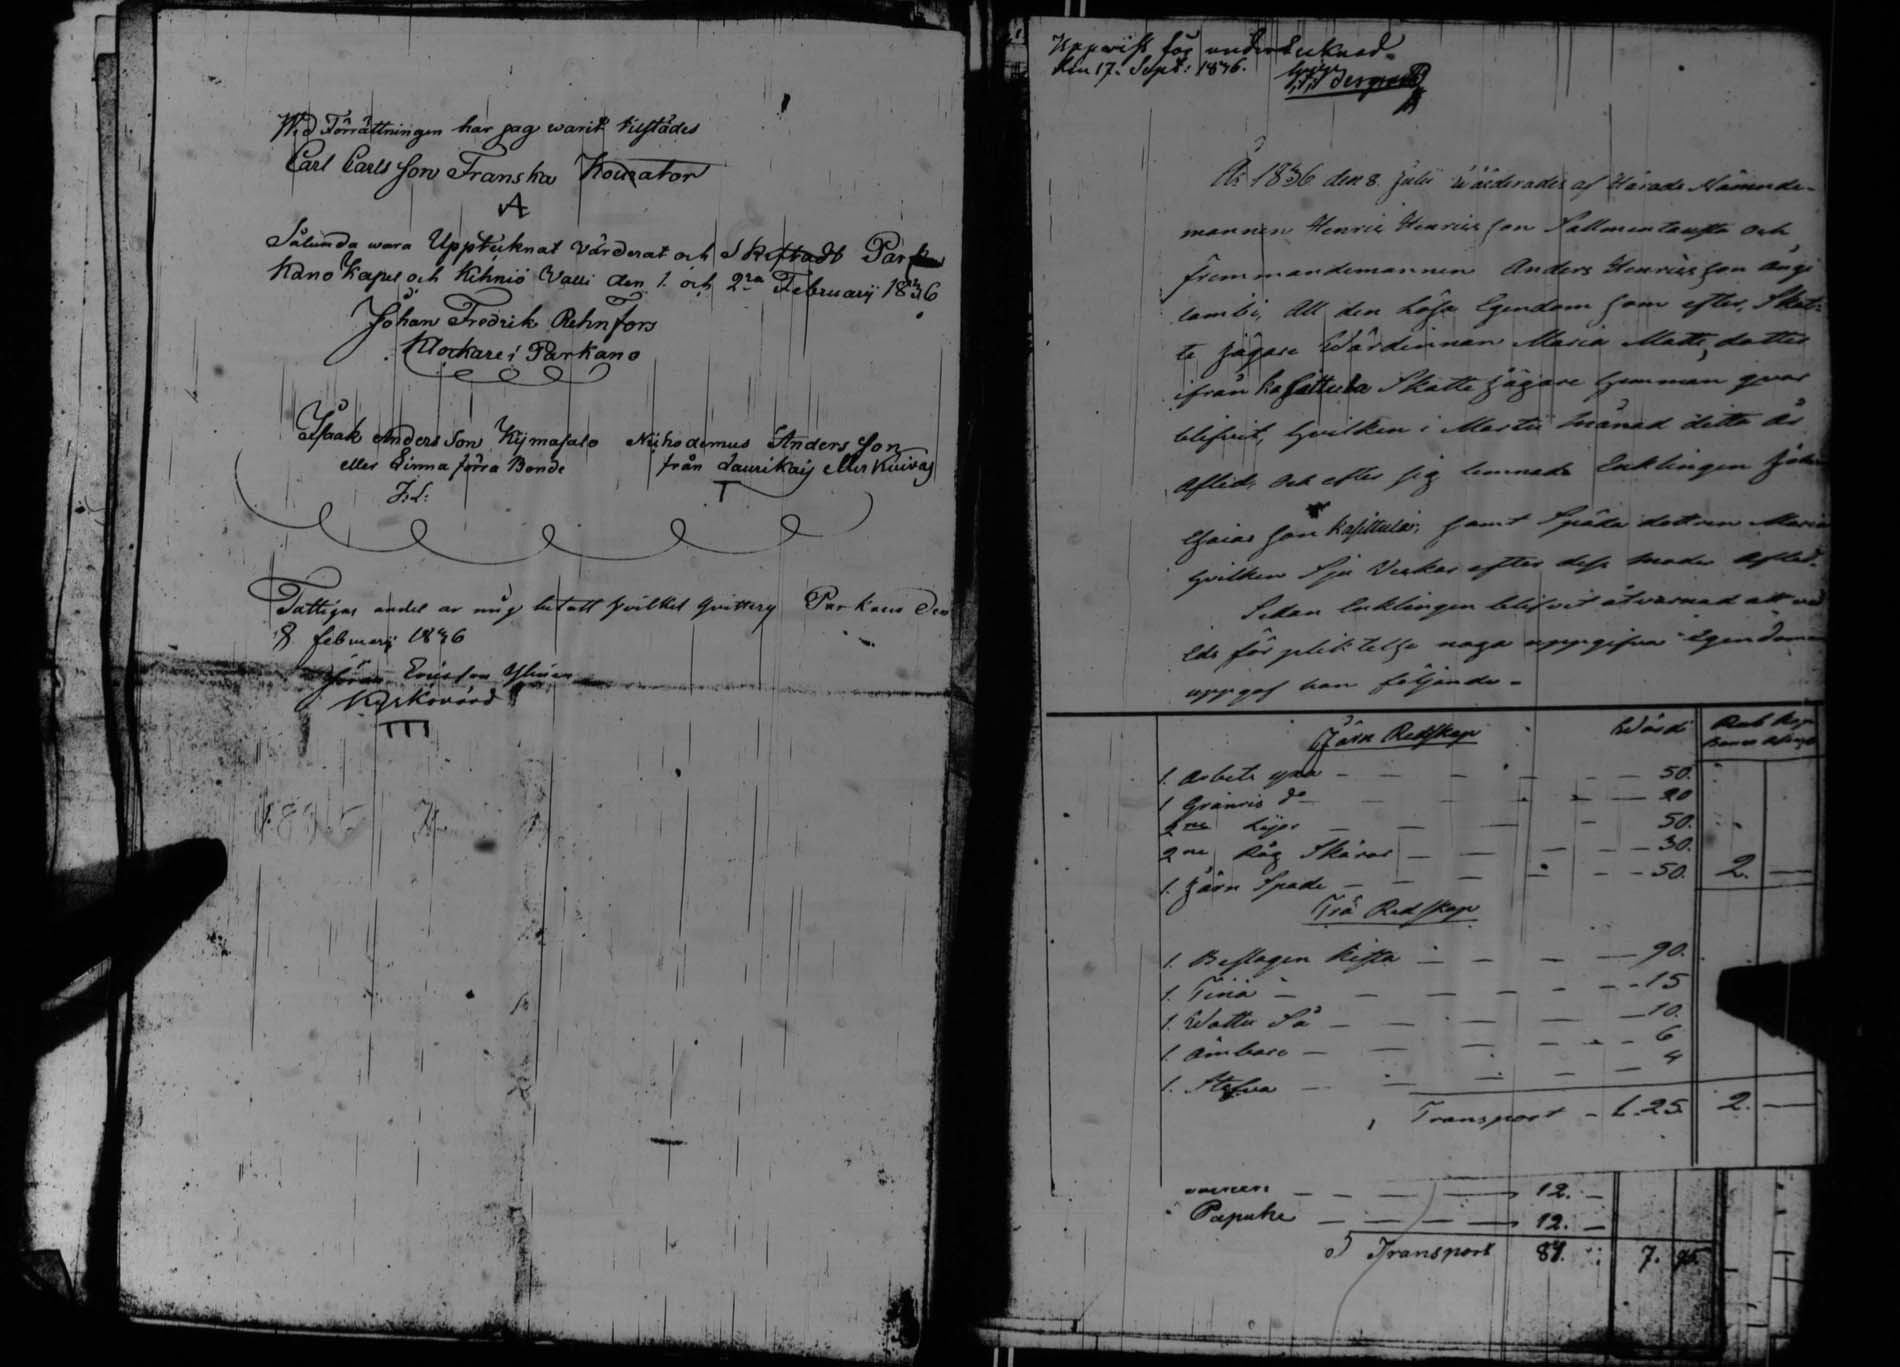 Wid Förrättningen har jag warit tilstädes
Carl Carls Son Franska Kourator
Sålunda wara Uppteknat värderat och Skiftadt Par
Kano Kapel och Kihniö Walli den 1. och 2ra Februarij 1836
Johan Fredrik Rehnfors
Klockare i Parkano
Isaak Anders Son Kijmasalo
eller Linna förra Bonde
I:L:
Nikodemus Anders Son
från Laurikaij eller Kuivas
Fattigas andel av mig betalt hvilket qvitterj Parkano den
8 februarij 1836
Ericsson Ylinen
Kyrkovärd
Uppvist för undertecknad
den 17. Sept: 1836.
År 1836 den 8. Julii Wärderades af Härads Nämnde-
mannen Henric Henricsson och
fremmandemannen Anders Henricsson
lambi, All den lösa Egendom som efter, Skat-
te Jägare Wärdinnan Maria Matts dotter
ifrån Kapittula Skatte Jägare hemman qvar
blifvit, hvilken i Martii Månad detta År
Afled, och efter sig lemnade Enklingen
Esaias Son Kapittula, samt Späda dottren Maria
hvilken Sju Veckor efter dess moder Afled.
Sedan Enklingen blifvit åtvarnad att
Eds förpliktelse noga uppgifva Egendomen
uppgaf han följande
Järn Redskap Wärde
1. Arbets yxa — 50.
1 Granris do — 20
2ne Lijor — 50.
2ne Råg Skäror — 30.
1. Järn Spade — 50. 2. —
Trä Redskap
1. Beslagen Kista — 90.
1. Tina — 15
1. Watten Så — 10.
1. Ämbare — 6
1. Stäfva — 4
Transport — 1.25. 2. —
— 12. —
Papuhe — 12. —
Transport 84. 7. 95.